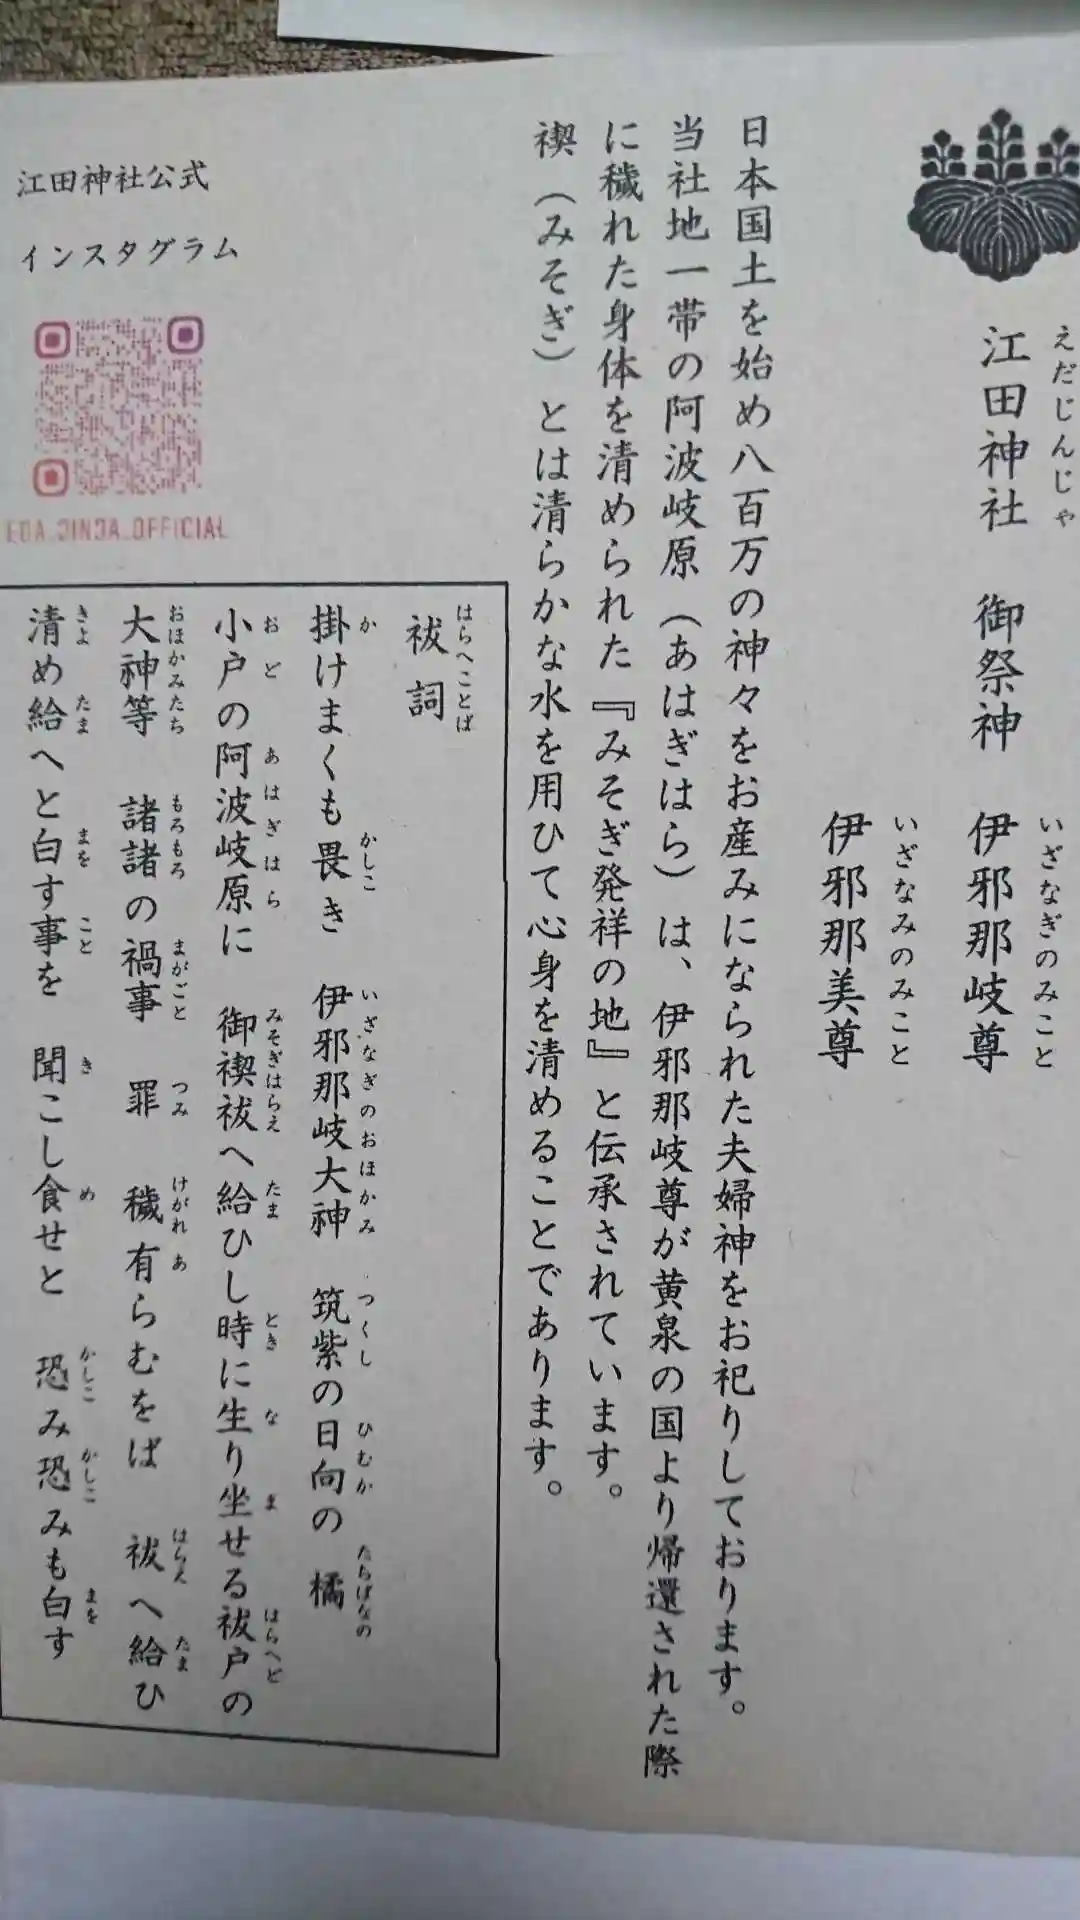 えだじんじゃ
江田神社 御祭神 伊邪那岐尊
いざなぎのみこと
伊邪那美尊
いざなみのみこと
日本国土を始め八百万の神々をお産みになられた夫婦神をお祀りしております。
当社地一帯の阿波岐原(あはぎはら)は、伊邪那岐尊が黄泉の国より帰還された際
に穢れた身体を清められた『みそぎ発祥の地』と伝承されています。
禊(みそぎ)とは清らかな水を用ひて心身を清めることであります。
はらへことば
祓詞
か かしこ いざなぎのおほかみ つくし ひむか たちばなの
掛けまくも畏き 伊邪那岐大神 筑紫の日向の 橘
おど あはぎはら みそぎはらえ たま とき な ま はらへど
小戸の阿波岐原に 御禊祓へ給ひし時に生り坐せる祓戸の
おほかみたち もろもろ まがごと つみ けがれ あ はらえ たま
大神等 諸諸の禍事 罪 穢有らむをば 祓へ給ひ
きよ たま まを こと き め かしこ かしこ まを
清め給へと白す事を 聞こし食せと 恐み恐みも白す
江田神社公式
インスタグラム
EDA_JINJA_OFFICIAL